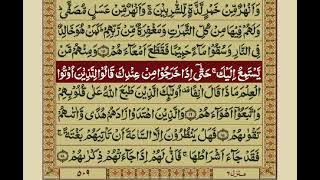 وَاَنْهٰرٌ مِّنْ خَمْرٍ لَّذَّةٍ لِّلشّٰرِبِيْنَ ۚ وَاَنْهٰرٌ مِّنْ عَسَلٍ مُّصَفًّى ؕ
وَلَهُمْ فِيْهَا مِنْ كُلِّ الثَّمَرٰتِ وَمَغْفِرَةٌ مِّنْ رَّبِّهِمْ ؕ كَمَنْ هُوَ خَالِدٌ
فِي النَّارِ وَسُقُوْا مَآءً حَمِيْمًا فَقَطَّعَ اَمْعَآءَهُمْ ﴿۱۵﴾ وَمِنْهُمْ مَّنْ
يَّسْتَمِعُ اِلَيْكَ ۚ حَتّٰۤى اِذَا خَرَجُوْا مِنْ عِنْدِكَ قَالُوْا لِلَّذِيْنَ اُوْتُوا
الْعِلْمَ مَاذَا قَالَ اٰنِفًا ۫ اُولٰٓئِكَ الَّذِيْنَ طَبَعَ اللّٰهُ عَلٰى قُلُوْبِهِمْ
وَاتَّبَعُوْۤا اَهْوَآءَهُمْ ﴿۱۶﴾ وَالَّذِيْنَ اهْتَدَوْا زَادَهُمْ هُدًى وَّاٰتٰىهُمْ
تَقْوٰىهُمْ ﴿۱۷﴾ فَهَلْ يَنْظُرُوْنَ اِلَّا السَّاعَةَ اَنْ تَاْتِيَهُمْ بَغْتَةً ۚ
فَقَدْ جَآءَ اَشْرَاطُهَا ۚ فَاَنّٰى لَهُمْ اِذَا جَآءَتْهُمْ ذِكْرٰىهُمْ ﴿۱۸﴾
منزل ٦
٥٠٩